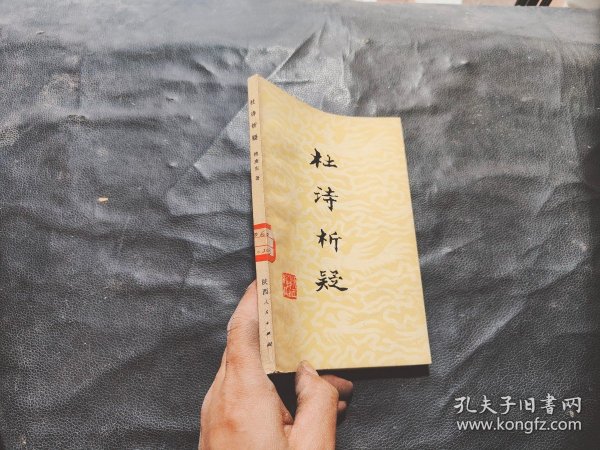 杜诗析疑
杜诗析疑
著
陕西人民出版社
孔夫子旧书网
www.kongfz.com